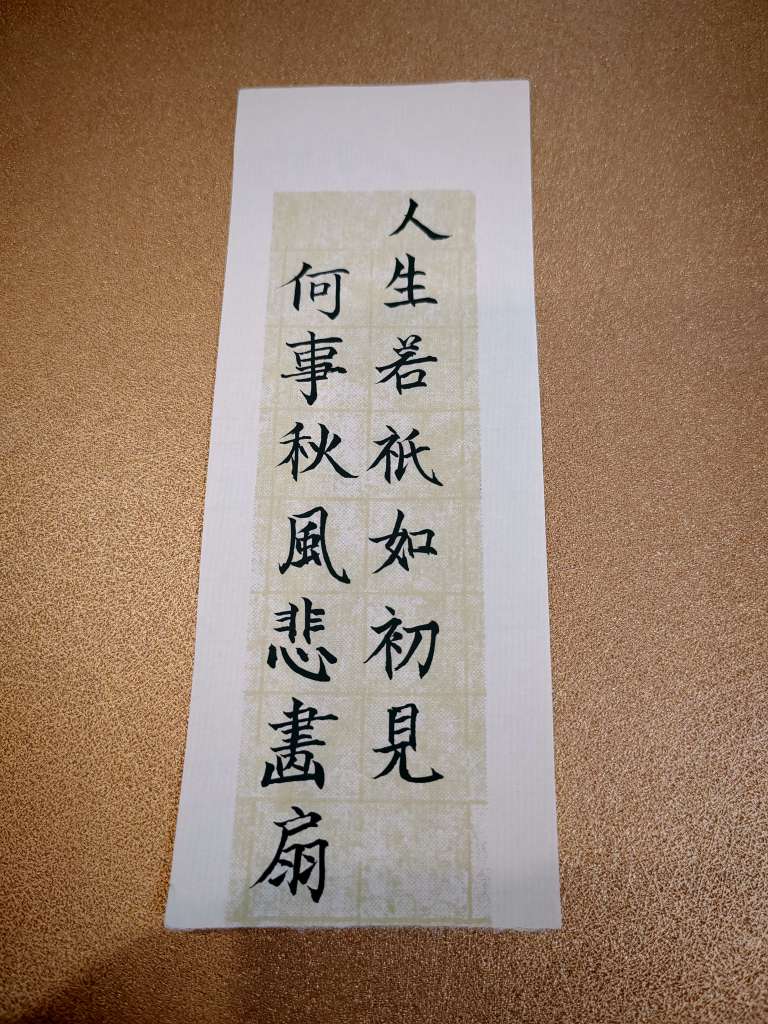 人生若祇如初見
何事秋風悲畵扇